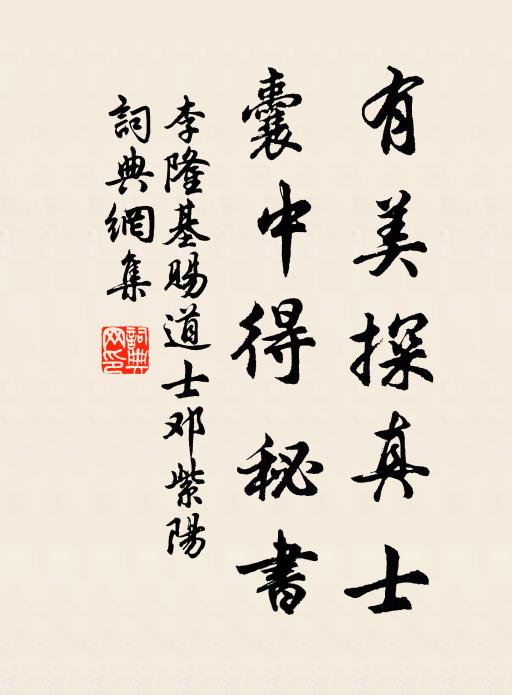 有美探真士
囊中得秘書
李隆基賜道士邓紫陽
詞典網集
詞典
网印